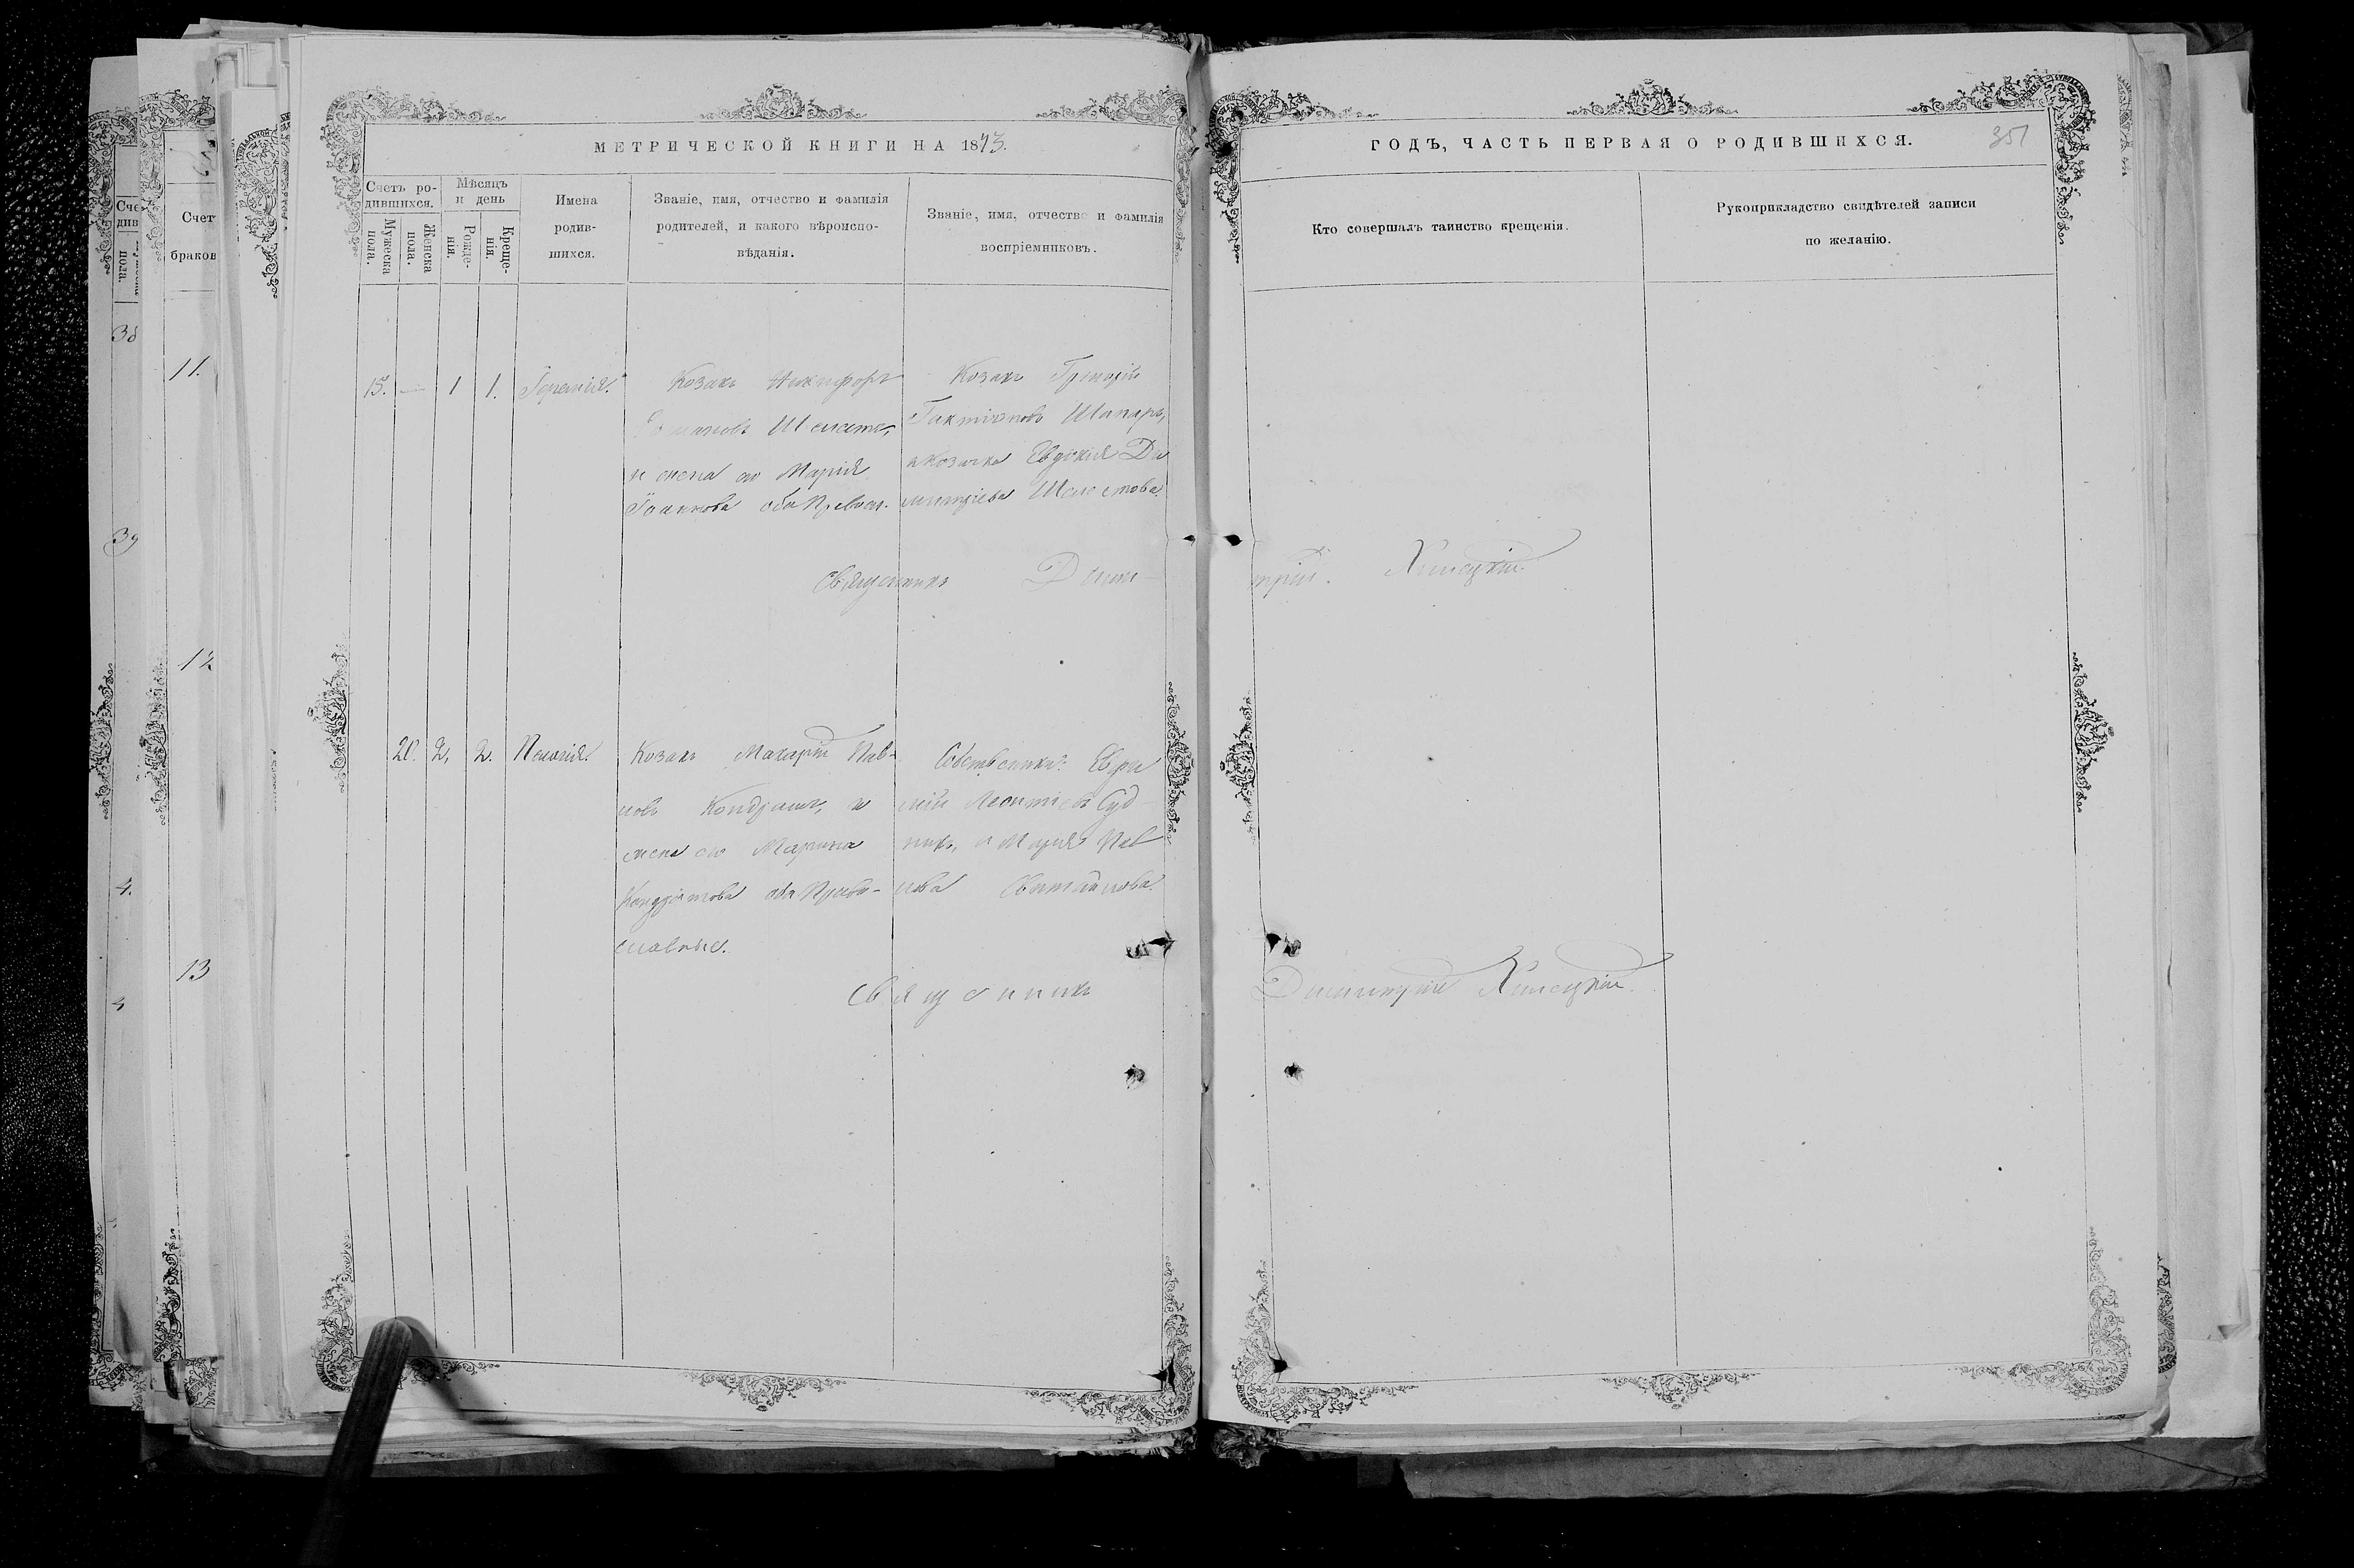 МЕТРИЧЕСКОЙ КНИГИ НА 1873.
ГОДЪ, ЧАСТЬ ПЕРВАЯ О РОДИВШИХСЯ.
351
Счетъ ро-
дившихся.
Мужеска
пола.
Женска
пола.
Мѣсяцъ
и день
Рожде-
нія.
Креще-
нія.
Имена
родив-
шихся.
Званіе, имя, отчество и фамилія
родителей, и какого вѣроиспо-
вѣданія.
Званіе, имя, отчество и фамилія
воспріемниковъ.
Кто совершалъ таинство крещенія.
Рукоприкладство свидѣтелей записи
по желанію.
15. — 1 1. Іеремія.
Козакъ Никифоръ
Шелестъ,
и жена его Марія
Іоаннова оба Правосл.
Козакъ Григорій
Шапаръ,
и козачка Евдокія Ди
митріева Шелестова.
Священникъ Дими-
трій. Хилецкій.
20. 2. 2. Пелагія.
Козакъ Макарій Пав-
ловъ Кондрашъ, и
жена его Марина
Кондратова оба Право-
славные.
Собственникъ Ефи
мій Леонтіевъ Суд-
никъ, и Марія Пав
лова
Священникъ
Димитрій Хилецкій.
Сче
див
пола.
38
39
4.
Счет
браков
11.
12
13